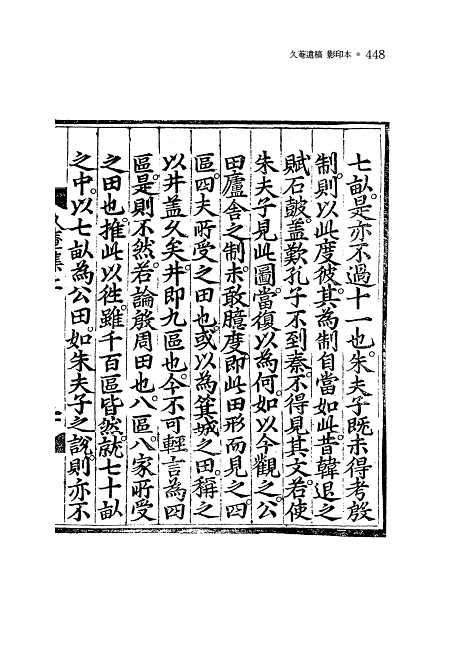 久菴遺稿 影印本 ● 448
七畝。是亦不過十一也。朱夫子旣未得考殷
制。則以此度彼。其為制自當如此。昔韓退之
賦石皷。盖歎孔子不到秦。不得見其文。若使
朱夫子見此圖。當復以為何。如以今觀之。公
田廬舍之制。未敢臆度。即此田形而見之。四
區。四夫所受之田也。或以為箕城之田。稱之
以井盖久矣。井即九區也。今不可輕言為四
區。是則不然。若論殷周田也。八區。八家所受
之田也。推此以徃。雖千百區皆然。就七十畝
之中。以七畝為公田。如朱夫子之說。則亦不